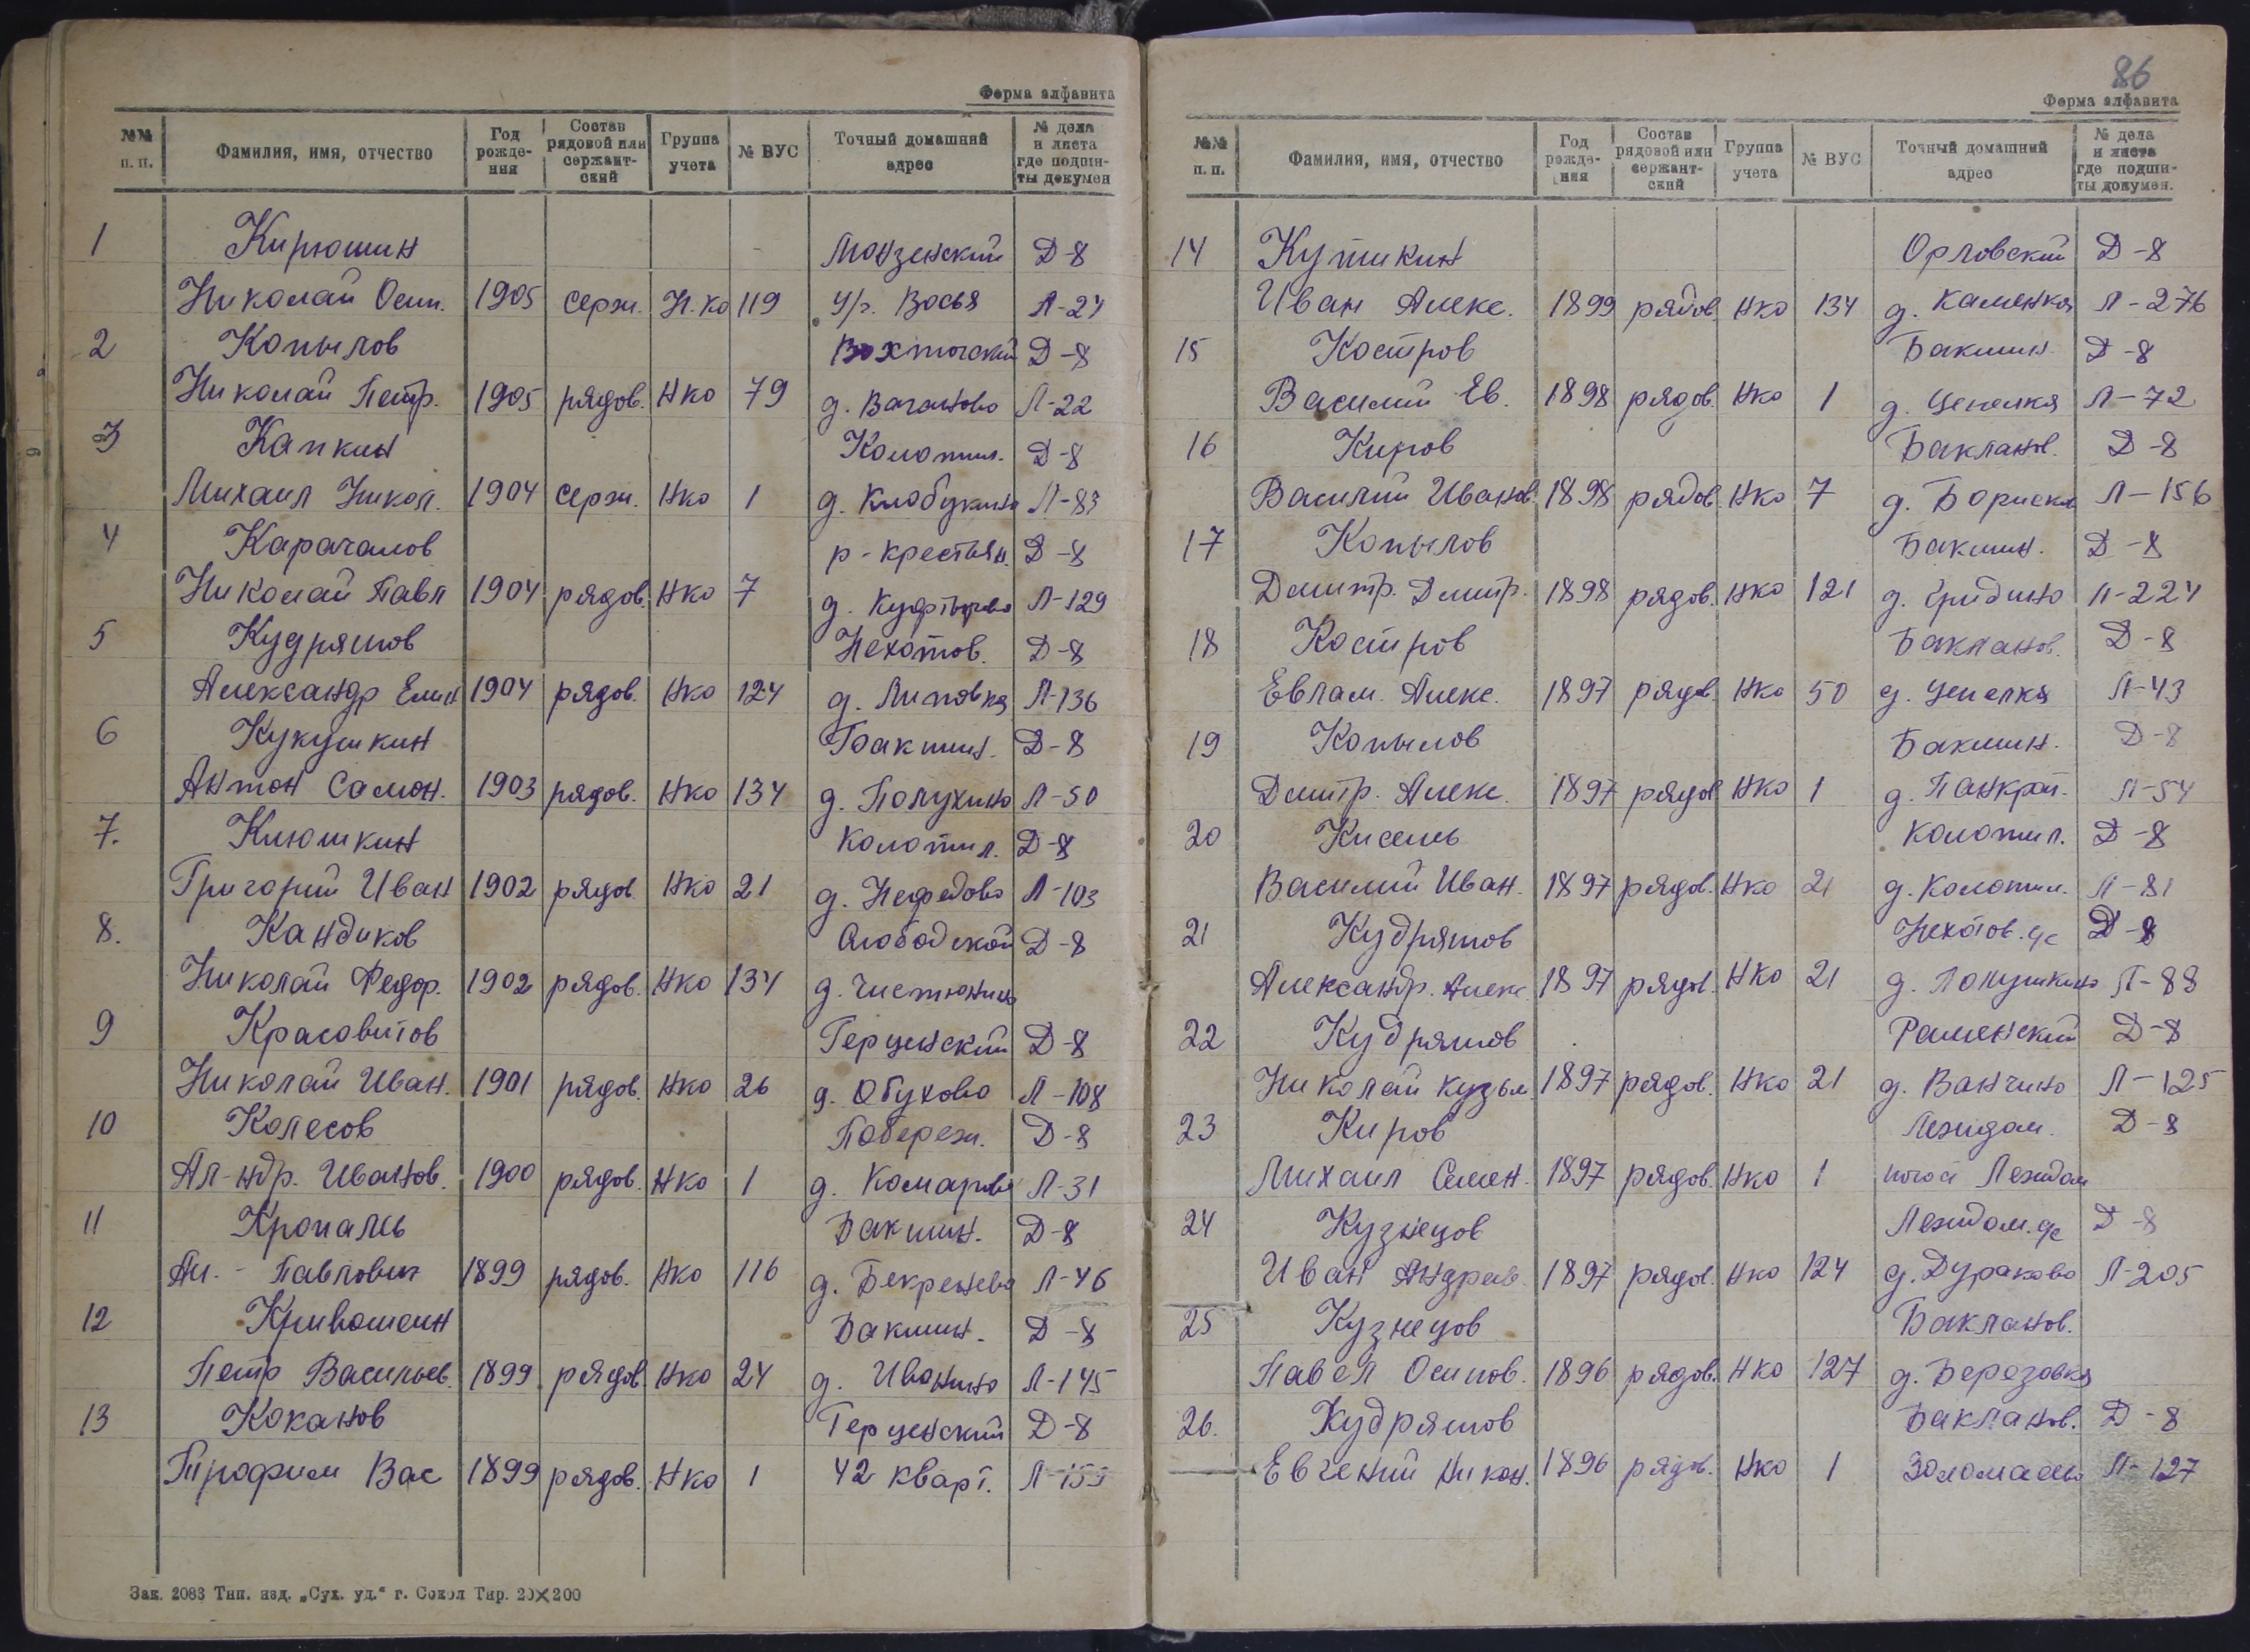 Форма алфавита
№№ п. п. Фамилия, имя, отчество Год рождения Состав рядовой или сержантский Группа учета № ВУС Точный домашний адрес № дела и листа где подшиты докумен
1 Кирюшин Монзенский Д-8
Николай Осип. 1905 серж. Н.ко 119 У/г. Восья Л-24
2 Копылов Вохтогский Д-8
Николай Петр. 1905 рядов. Нко 79 д. Ваганово Л-22
3 Капкин Коломпил. Д-8
Михаил Никол. 1904 серж. Нко 1 д. Клобукино Л-83
4 Карачалов р-крестьян. Д-8
Николай Павл 1904 рядов. Нко 7 д. Л-129
5 Кудряшов Нехотов. Д-8
Александр Емил 1904 рядов. Нко 124 д. Липовка Л-136
6 Кукушкин Бакшин. Д-8
Антон Самон. 1903 рядов. Нко 134 д. Полухино Л-50
7. Клюшкин Колотил. Д-8
Григорий Иван 1902 рядов. Нко 21 д. Нефедово Л-103
8. Кандиков Слободской Д-8
Николай Федор. 1902 рядов. Нко 134 д.
9 Красовитов Герценский Д-8
Николай Иван. 1901 рядов. Нко 26 д. Обухово Л-108
10 Колесов Побереж. Д-8
Ал-ндр. Иванов. 1900 рядов. Нко 1 д. Комарово Л-31
11 Кропаль Бакшин. Д-8
Ан. - Павлович 1899 рядов. Нко 116 д. Бекренево Л-46
12 Кривошеин Бакшин. Д-8
Петр Васильев. 1899 рядов Нко 24 д. Иванино Л-145
13 Коканов Герценский Д-8
Трофим Вас 1899 рядов. Нко 1 42 кварт. Л-155
Зак. 2083 Тип. изд. „Сух. уд.“ г. Сокол Тир. 20×200
86
Форма алфавита
№№ п. п. Фамилия, имя, отчество Год рождения Состав рядовой или сержантский Группа учета № ВУС Точный домашний адрес № дела и листа где подшиты докумен.
14 Кутикин Орловский Д-8
Иван Алекс. 1899 рядов. Нко 134 д. Каменка Л-276
15 Костров Бакшин. Д-8
Василий Ев. 1898 рядов. Нко 1 д. Цепелка Л-72
16 Киров Бакланов. Д-8
Василий Иванов. 1898 рядов. Нко 7 д. Л-156
17 Копылов Бакшин. Д-8
Дмитр. Дмитр. 1898 рядов. Нко 121 д. Гридино Л-224
18 Костров Бакланов. Д-8
Евлам. Алекс. 1897 рядов. Нко 50 д. Цепелка Л-43
19 Копылов Бакшин. Д-8
Дмитр. Алекс. 1897 рядов Нко 1 д. Панкрат. Л-54
20 Кисель Колотил. Д-8
Василий Иван. 1897 рядов. Нко 21 д. Колотил. Л-81
21 Кудряшов Нехотов. с/с Д-8
Александр. Алекс. 1897 рядов. Нко 21 д. Полушкино Л-88
22 Кудряшов Раменский Д-8
Николай Кузьм 1897 рядов. Нко 21 д. Ванчино Л-125
23 Киров Лежидом. Д-8
Михаил Семен. 1897 рядов. Нко 1 Лежидом
24 Кузнецов Лежидом. с/с Д-8
Иван Андреев. 1897 рядов. Нко 124 д. Дураково Л-205
25 Кузнецов Бакланов.
Павел Осипов. 1896 рядов. Нко 127 д. Березовка
26. Кудряшов Бакланов. Д-8
Евгений Никон. 1896 рядов. Нко 1 Л-127